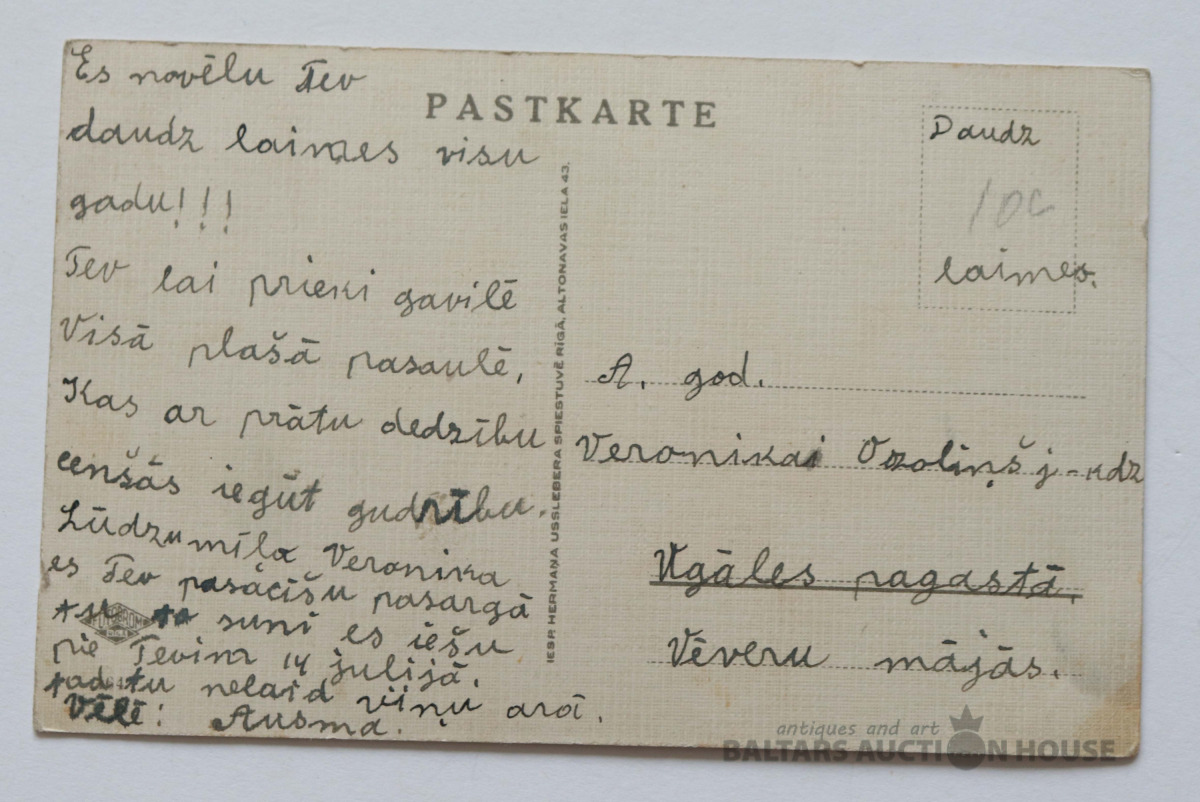 Es novēlu Tev
daudz laimes visu
gadu!!!
Tev lai prieki gavilē
Visā plašā pasaulē,
Kas ar prātu dedzību
cenšās iegūt gudrību.
Lūdzu mīļa Veronika
es Tev pasacīšu pasargā
tu to suni es iešu
pie Tevim 14 julijā.
tad tu nelaid viņu arā.
Vēlē: Ausma.
PASTKARTE
IESP. HERMAŅA USSLEBERA SPIESTUVĒ RĪGĀ, ALTONAVAS IELA 43.
Daudz
10c
laimes.
A. god.
Veronikai Ozoliņš j-kdz
Ugāles pagastā.
Vēveru mājās.
antiques and art
BALTARS AUCTION HOUSE